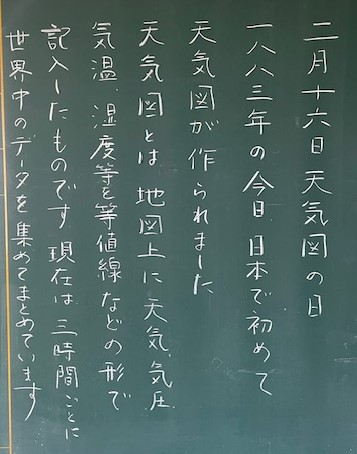 二月十六日天気図の日
一八八三年の今日日本で初めて
天気図が作られました
天気図とは地図上に天気、気圧
気温、湿度等を等値線などの形で
記入したものです現在は三時間ごとに
世界中のデータを集めてまとめています